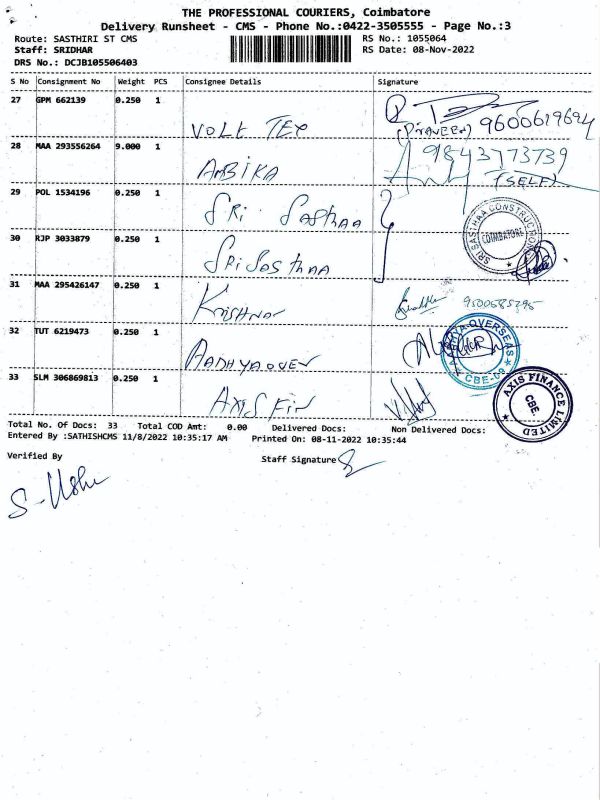 THE PROFESSIONAL COURIERS, Coimbatore
Delivery Runsheet - CMS - Phone No.:0422-3505555 - Page No.:3
Route: SASTHIRI ST CMS RS No.: 1055064
Staff: SRIDHAR RS Date: 08-Nov-2022
DRS No.: DCJB105506403
S No Consignment No Weight PCS Consignee Details Signature
27 GPM 662139 0.250 1 VOLK TEX (PRAVEEN) 9600619694
28 MAA 293556264 9.000 1 AMBIKA 9843773739 (SELF)
29 POL 1534196 0.250 1 SRi SASTHAA
30 RJP 3033879 0.250 1 SRi SASTHAA SRI SASTHAA CONSTRUCTION COIMBATORE
31 MAA 295426147 0.250 1 KRISHNA 9500585295
32 TUT 6219473 0.250 1 AADHYAOVER OVERSEAS CBE-09
33 SLM 306869813 0.250 1 AXIS FIN AXIS FINANCE LIMITED CBE.
Total No. Of Docs: 33 Total COD Amt: 0.00 Delivered Docs: Non Delivered Docs:
Entered By :SATHISHCMS 11/8/2022 10:35:17 AM Printed On: 08-11-2022 10:35:44
Verified By Staff Signature
S-Usha